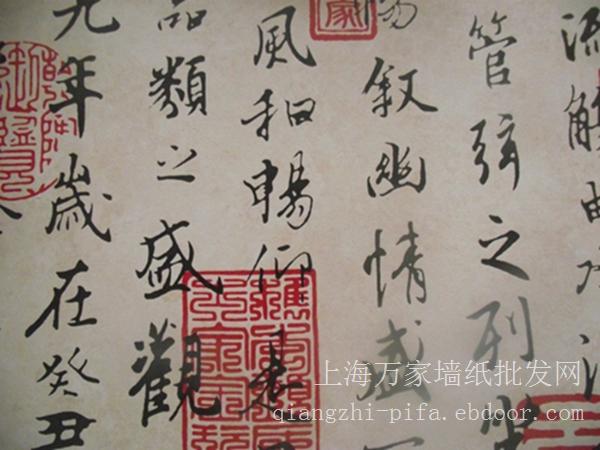 流觴曲水
管弦之列坐
叙幽情盛
風和暢仰惠
品類之盛觀
九年歲在癸丑
上海万家墙纸批发网
qiangzhi-pifa.ebdoor.com